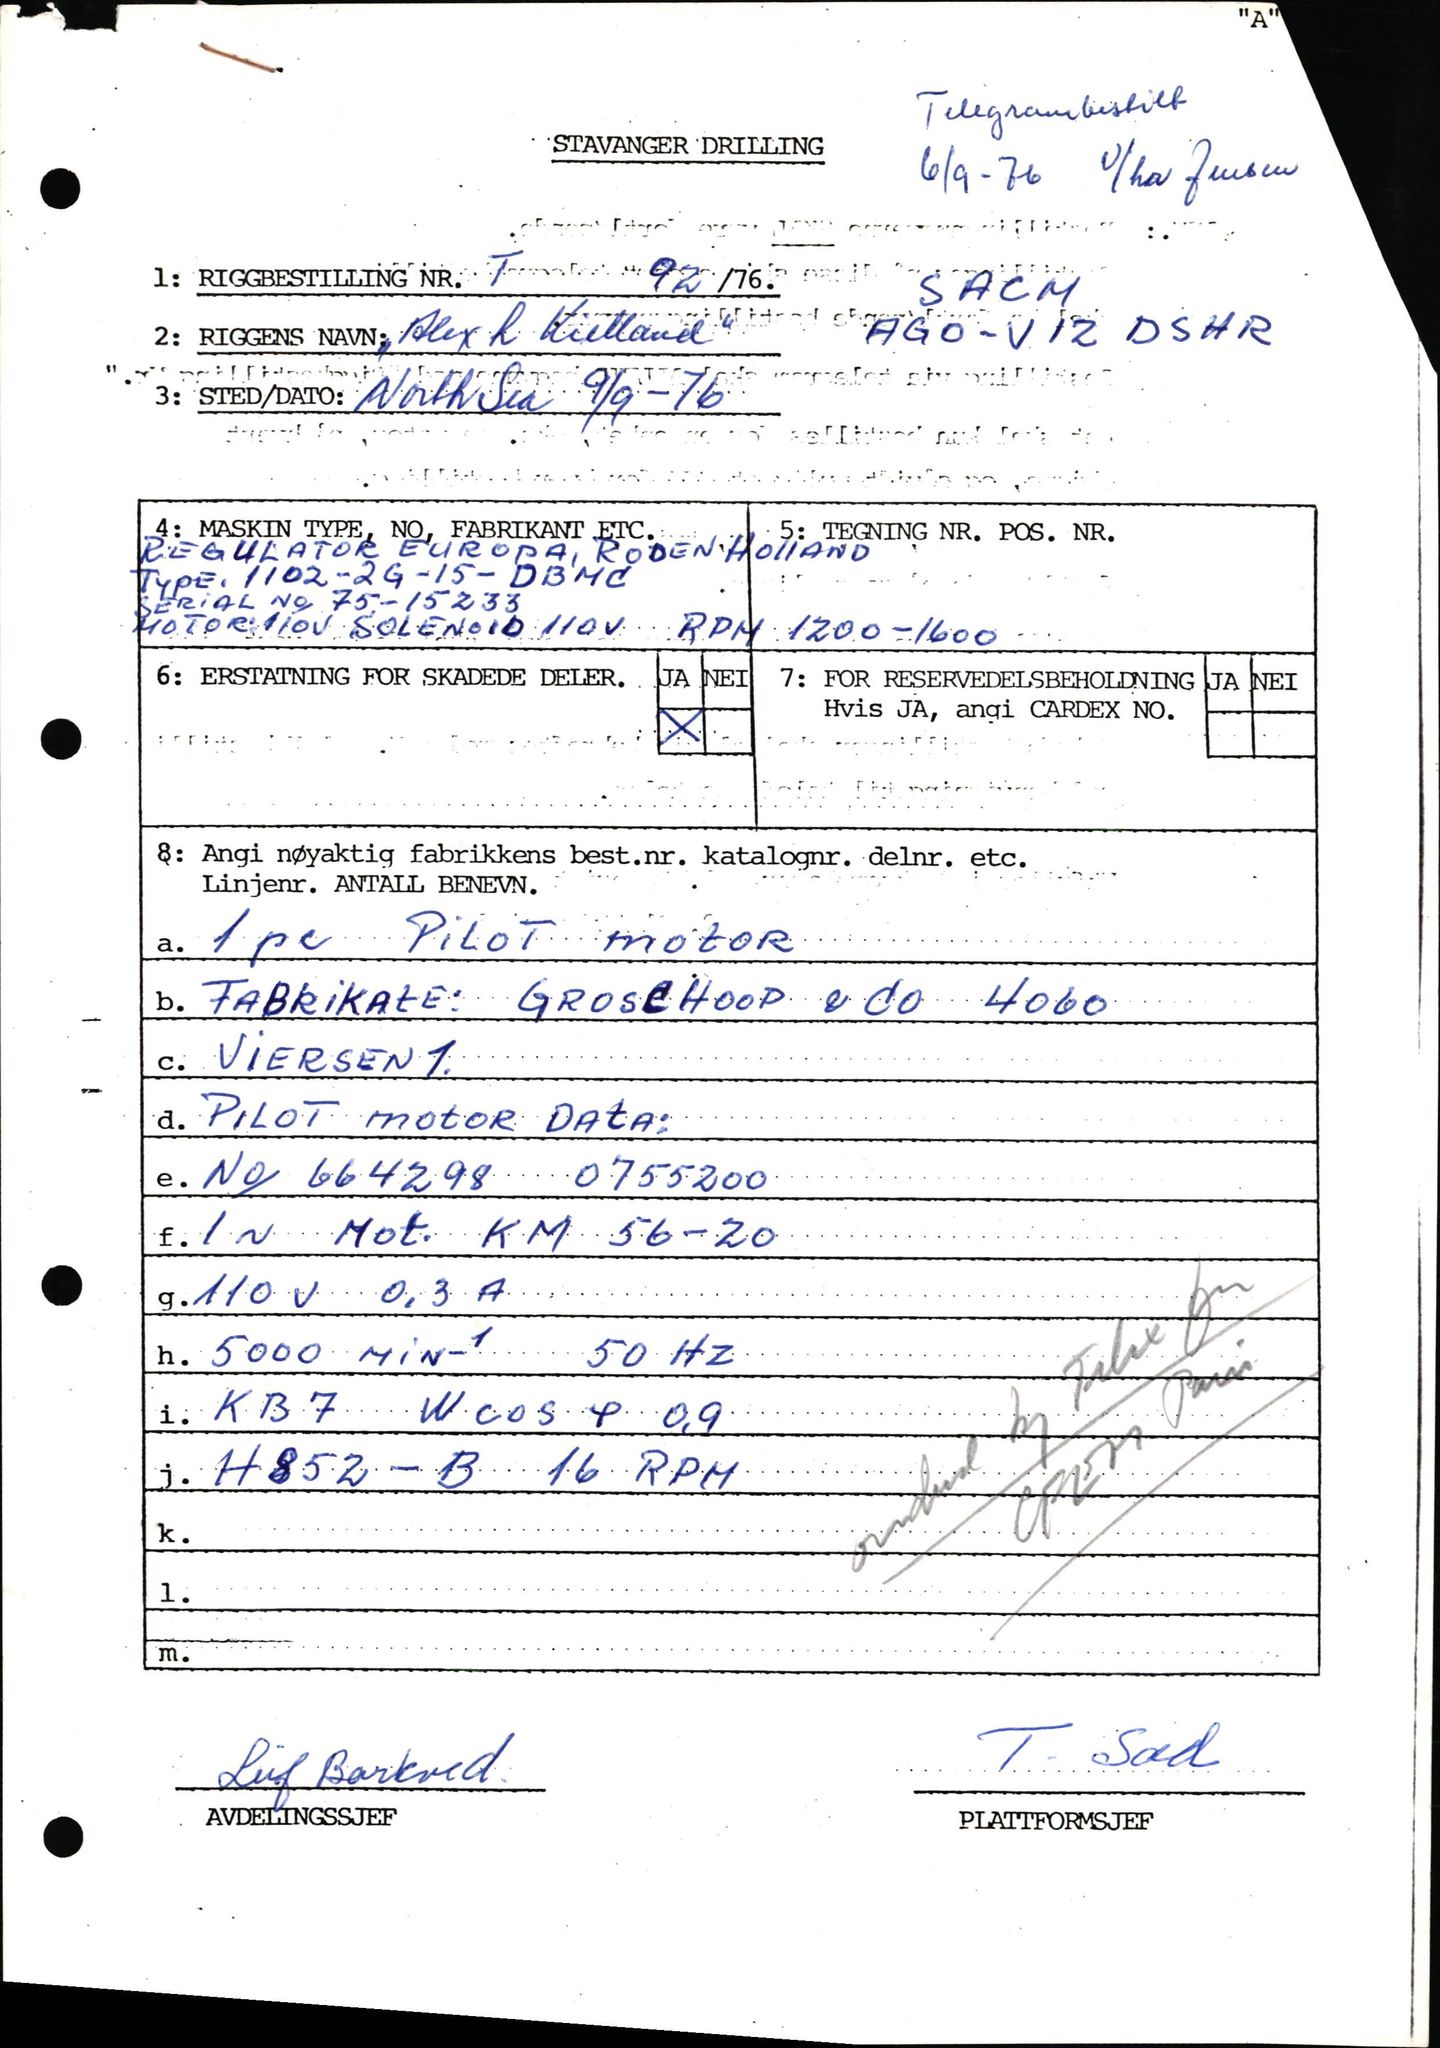 "A"
Telegrambestilt
STAVANGER DRILLING
6/9-76 Jensen
1: RIGGBESTILLING NR. T 92/76.
SACM
2: RIGGENS NAVN: „Alex L Kielland"
AGO-V12 DSHR
3: STED/DATO: North Sea 9/9-76
4: MASKIN TYPE, NO, FABRIKANT ETC.
5: TEGNING NR. POS. NR.
REGULATOR EUROPA, RODEN HOLLAND
TYPE. 1102-2G-15-DBMC
SERIAL No 75-15233
MOTOR: 110V SOLENOID 110V RPM 1200-1600
6: ERSTATNING FOR SKADEDE DELER. JA NEI
7: FOR RESERVEDELSBEHOLDNING JA NEI
Hvis JA, angi CARDEX NO.
8: Angi nøyaktig fabrikkens best.nr. katalognr. delnr. etc.
Linjenr. ANTALL BENEVN.
a. 1 pc PILOT motor
b. FABRIKATE: GROSCHOOP & CO 4060
c. VIERSEN 1.
d. PILOT motor DATA:
e. No 664298 0755200
f. 1 ~ Mot. KM 56-20
g. 110 V 0,3 A
h. 5000 MIN-1 50 HZ
i. KB7 W cos φ 0,9
j. H852-B 16 RPM
k.
l.
m.
by Telex
Paris
Leif Barkved
T. Sæd
AVDELINGSSJEF
PLATTFORMSJEF